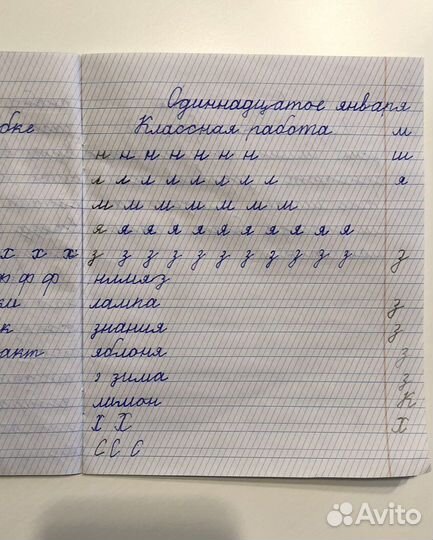 Одиннадцатое января
Классная работа м
н н н н н н н ш
л л л л л л л я
м м м м м м м
я я я я я я я я я я я
з з з з з з з з з з з з
нлмяз
лампа з
знания з
яблоня з
з зима з
лимон К
Х Х Х
С С С
бке
х х х
ф ф
к
акт
Avito